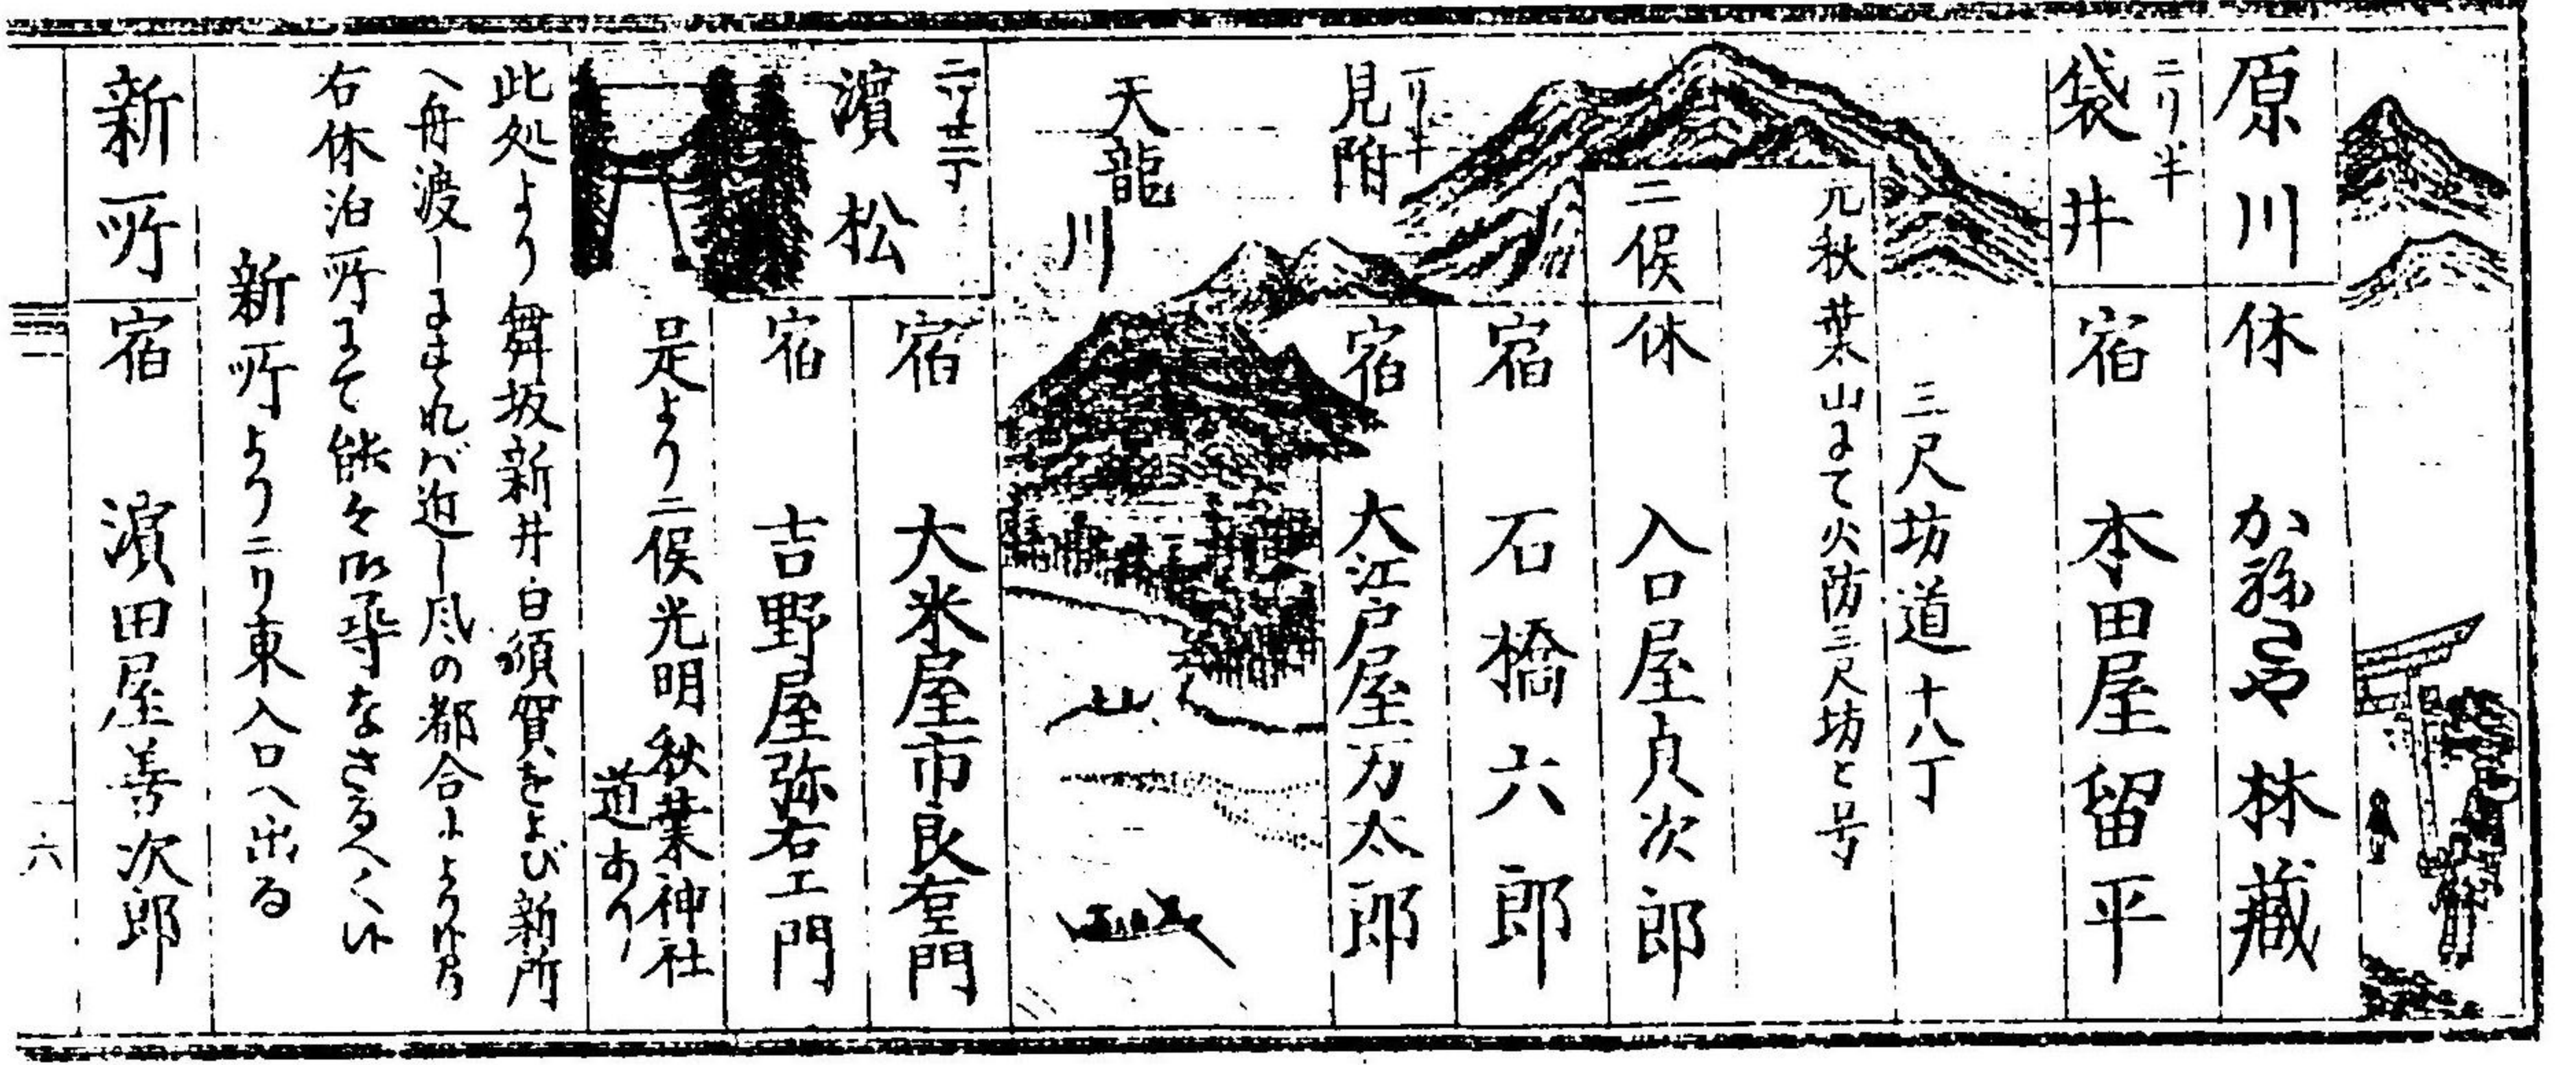 原川 休 かねや林藏
二り半
袋井 宿 本田屋留平
三尺坊道十八丁
元秋葉山にて火防三尺坊と号
二俣 休 入口屋貞次郎
宿 石橋六郎
一り半
見附 宿 大江戸屋万太郎
天龍川
二り廿二丁
濱松 宿 大米屋市良右エ門
宿 吉野屋弥右エ門
是より二俣光明秋葉神社
道あり
此処より舞坂新井白須賀をよび新所
へ舟渡しにはれバ近し風の都合により
右休泊所にて能々御尋なさるべく候
新所より二り東入口へ出る
新所 宿 濱田屋善次郎
六